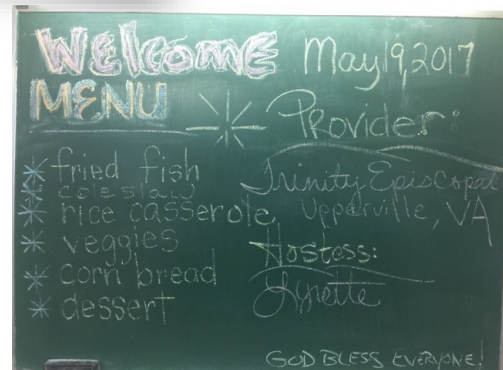 WELCOME
MENU
* fried fish
* cole slaw
* rice casserole
* veggies
* corn bread
* dessert
May 19, 2017
Provider:
Trinity Episcopal
Upperville, VA
Hostess:
Lynette
GOD BLESS EVERYONE!